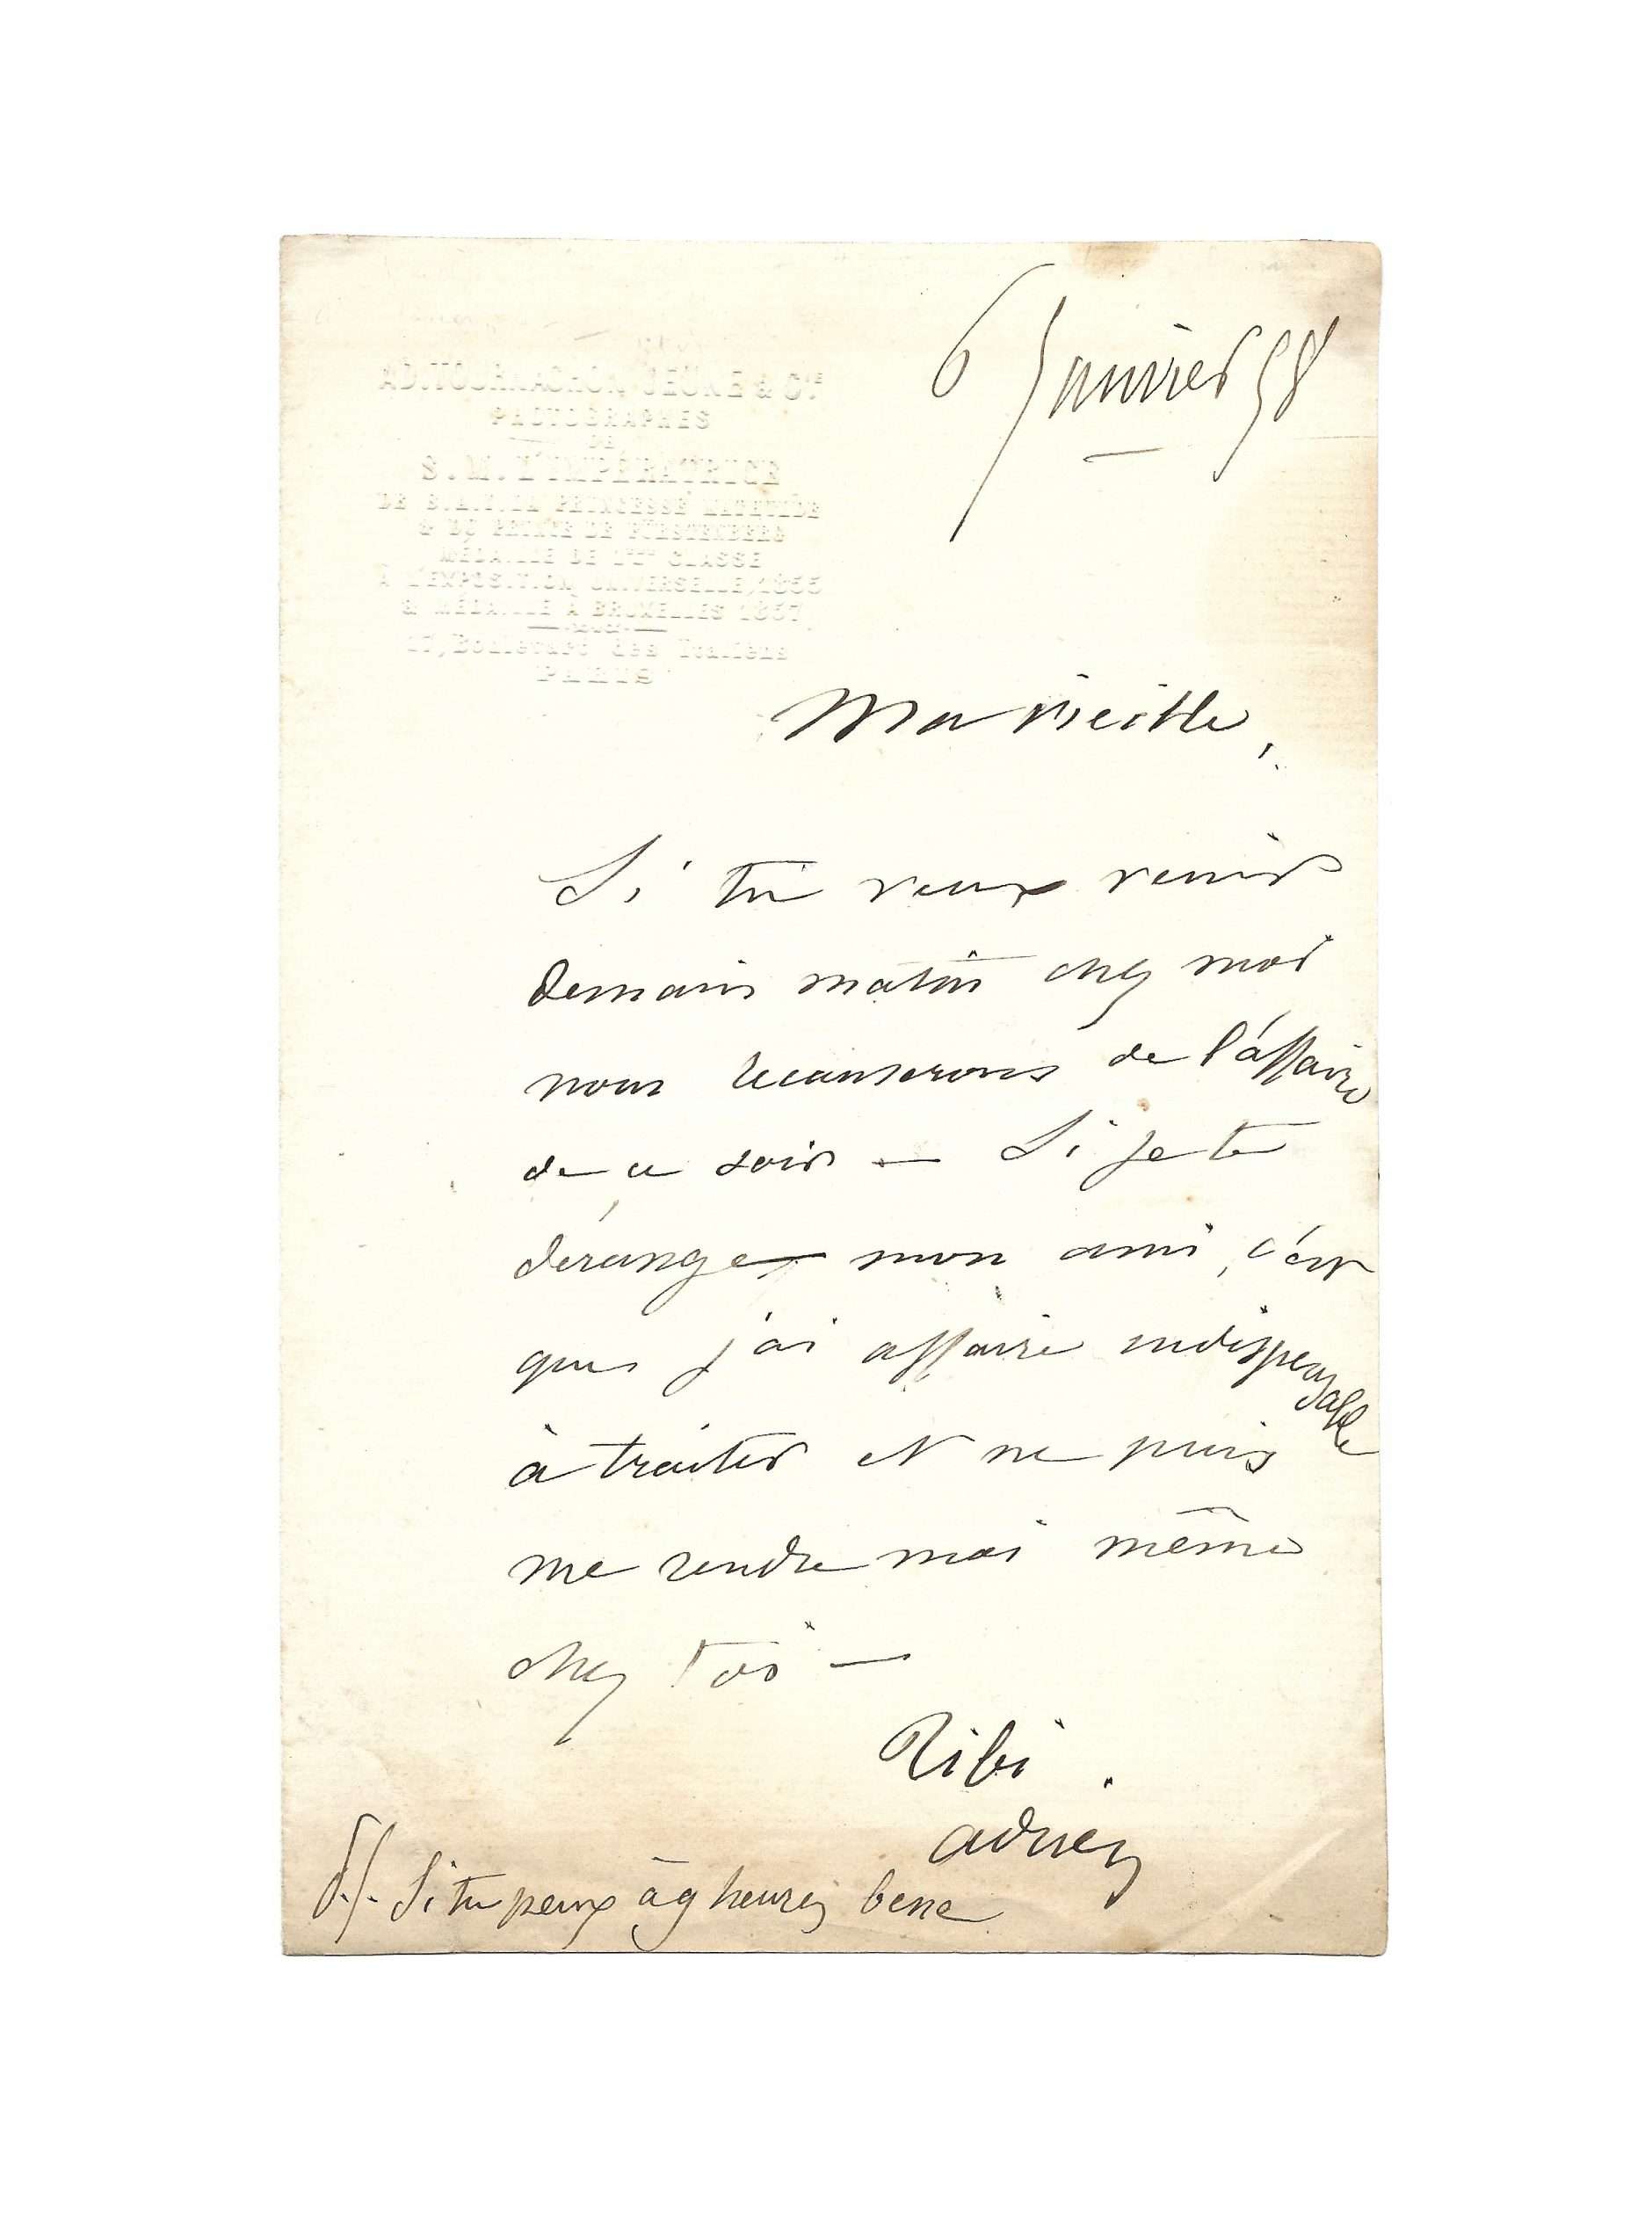 6 Janvier 58
AD. TOURNACHON JEUNE & Cie
PHOTOGRAPHES
DE
S. M. L'IMPÉRATRICE
DE S. A. I. LA PRINCESSE MATHILDE
& DU PRINCE DE FURSTENBERG
MÉDAILLE DE 1ere CLASSE
A L'EXPOSITION UNIVERSELLE, 1855
& MÉDAILLE A BRUXELLES 1857
17, Boulevart des Italiens
PARIS
Ma vieille,
Si tu veux venir
demain matin chez moi
nous recauserons de l'affaire
de ce soir — Si je te
dérange mon ami, c'est
que j'ai affaire indispensable
à traiter et ne puis
me rendre moi même
chez toi —
Tibi
adrien
P.S. Si tu peux à 9 heures bene